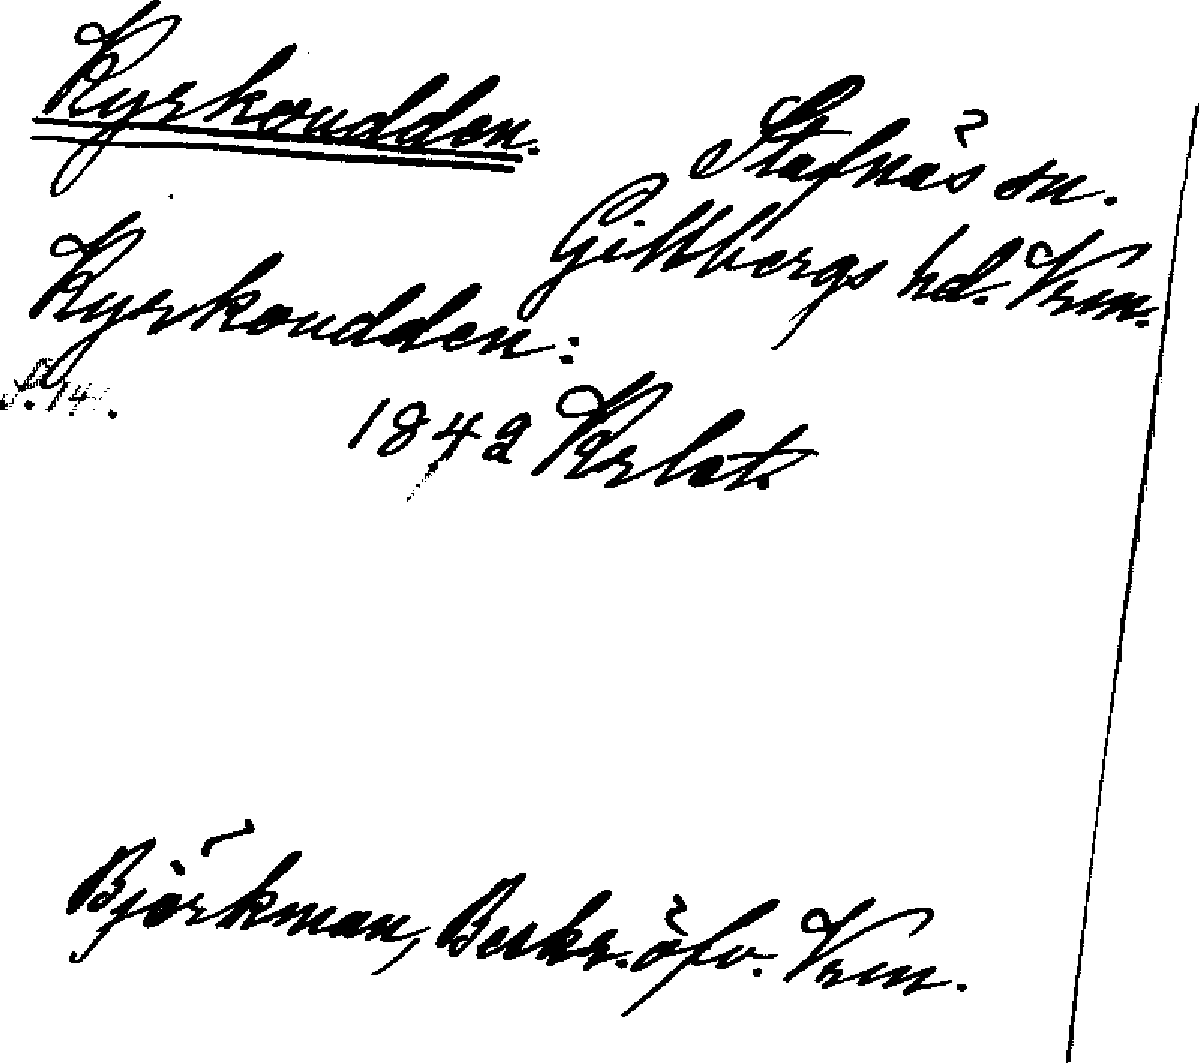 Kyrkoudden.
Stafnäs sn.
Gillbergs hd. Vrm.
Kyrkoudden:
S. 14.
1842 Krlat.
Björkman, Beskr. öfv. Vrm.